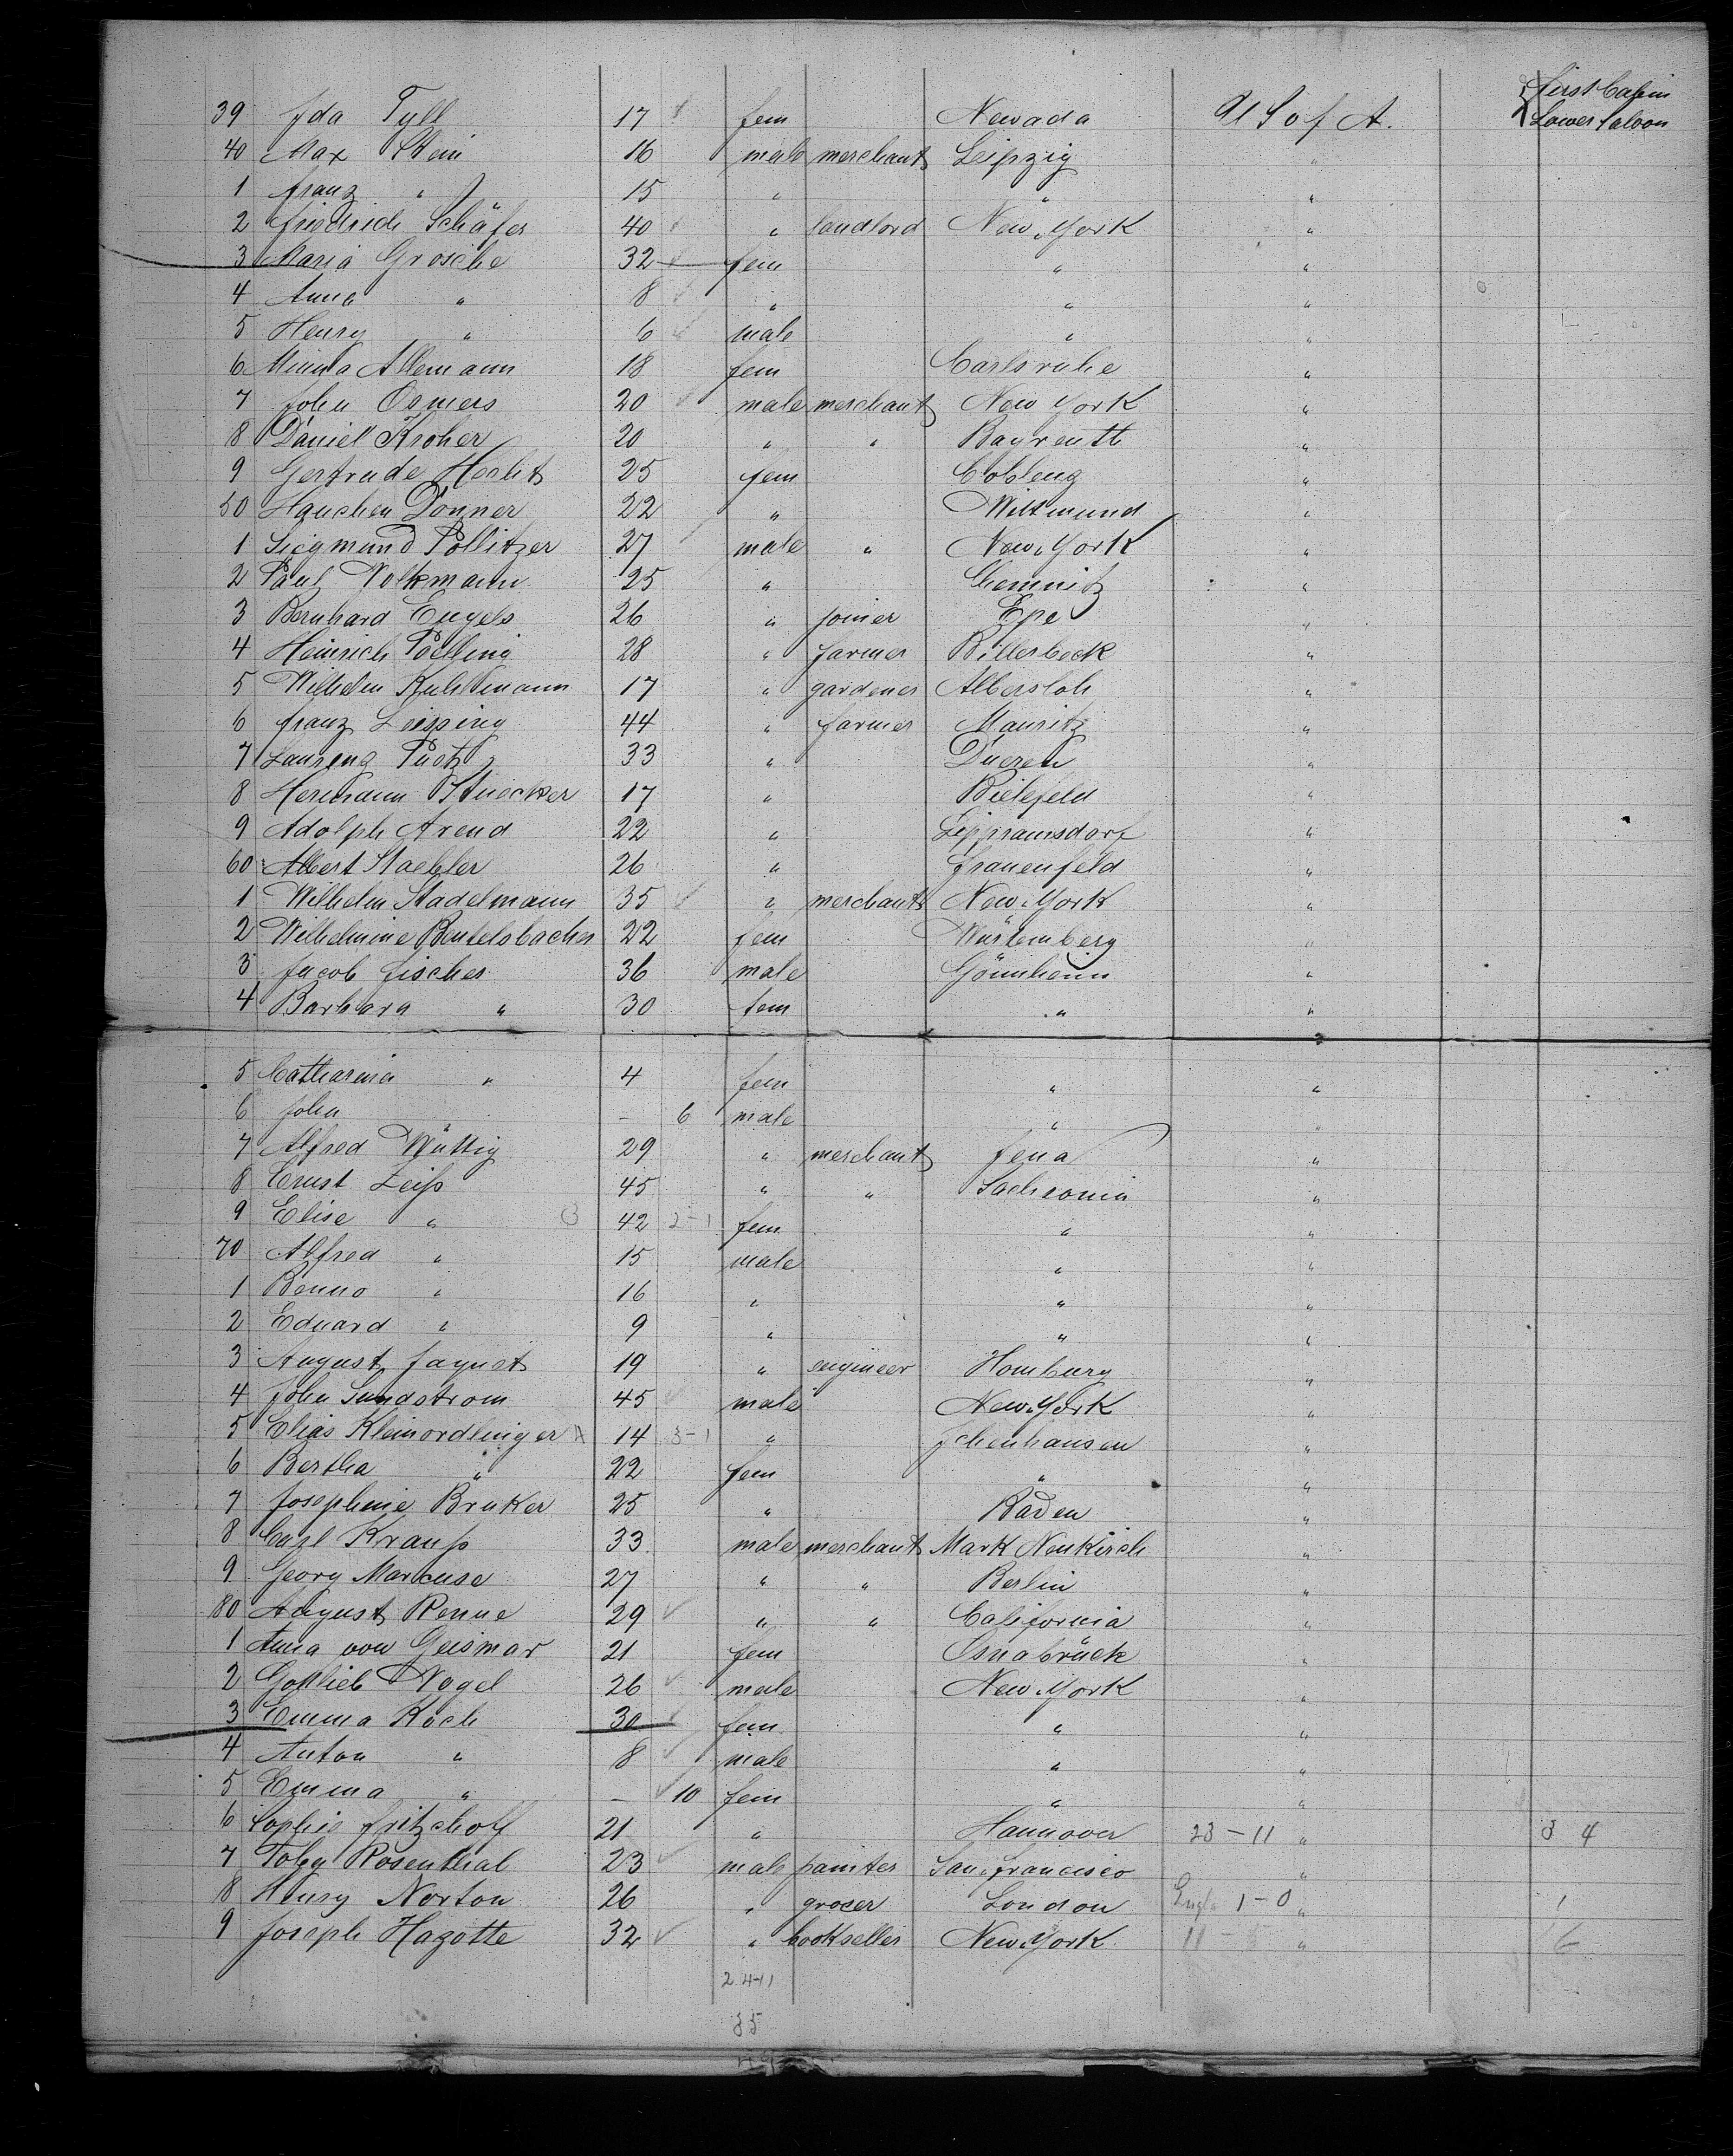 First Cabin
39 Ida Tyll 17 fem Newada U S of A. Lower Saloon
40 Max Stein 16 male merchant Leipzig "
1 Franz " 15 " " "
2 Friedrich Schäfer 40 " landlord New-York "
3 Maria Grosche 32 fem " "
4 Anna " 8 " " "
5 Henry " 6 male " "
6 Minna Allemann 18 fem Carlsruhe "
7 John Osmers 20 male merchant New York "
8 Daniel Kroher 20 " " Bayreuth "
9 Gertrude Hecht 25 fem Coblenz "
50 Hanchen Donner 22 " Wittmund "
1 Siegmund Pollitzer 27 male " New-York "
2 Paul Volkmann 25 " Chemnitz "
3 Bernhard Engels 26 " joiner Epe "
4 Heinrich Poelling 28 " farmer Billerbeck "
5 Wilhelm Kuhlmann 17 " gardener Albersloh "
6 Franz Leipping 44 " farmer Mauritz "
7 Laurenz Puetz 33 " Dueren "
8 Hermann Stuecker 17 " Bielefeld "
9 Adolph Arend 22 " Lippramsdorf "
60 Albert Staehler 26 " Frauenfeld "
1 Wilhelm Stadelmann 35 " merchant New-York "
2 Wilhelmine Beutelsbacher 22 fem Würtemberg "
3 Jacob Fischer 36 male Gönnheim "
4 Barbara " 30 fem " "
5 Catharina " 4 fem " "
6 John – 6 male " "
7 Alfred Wüttig 29 " merchant Jena "
8 Ernst Zeiß 45 " " Sachsonia "
9 Elise " 42 2-1 fem " "
70 Alfred " 15 male " "
1 Benno " 16 " " "
2 Eduard " 9 " " "
3 August Jaquet 19 " engineer Homburg "
4 John Sundstrom 45 male New-York "
5 Elias Kleinordlinger 14 3-1 " Ichenhausen "
6 Bertha " 22 fem " "
7 Josephine Bruker 25 " Baden "
8 Carl Krauß 33 male merchant Mark Neukirch "
9 Georg Marcuse 27 " " Berlin "
80 August Renne 29 " " California "
1 Anna von Geismar 21 fem Osnabrück "
2 Gottlieb Vogel 26 male New-York "
3 Emma Koch 30 fem " "
4 Anton " 8 male " "
5 Emma " – 10 fem " "
6 Sophie Fritzehoff 21 " Hannover 23-11 " 3 4
7 Toby Rosenthal 23 male painter San Francisco "
8 Henry Norton 26 " grocer London Engl. 1-0 " 1
9 Joseph Hagotte 32 " bookseller New-York 11- " 6
24-11
35